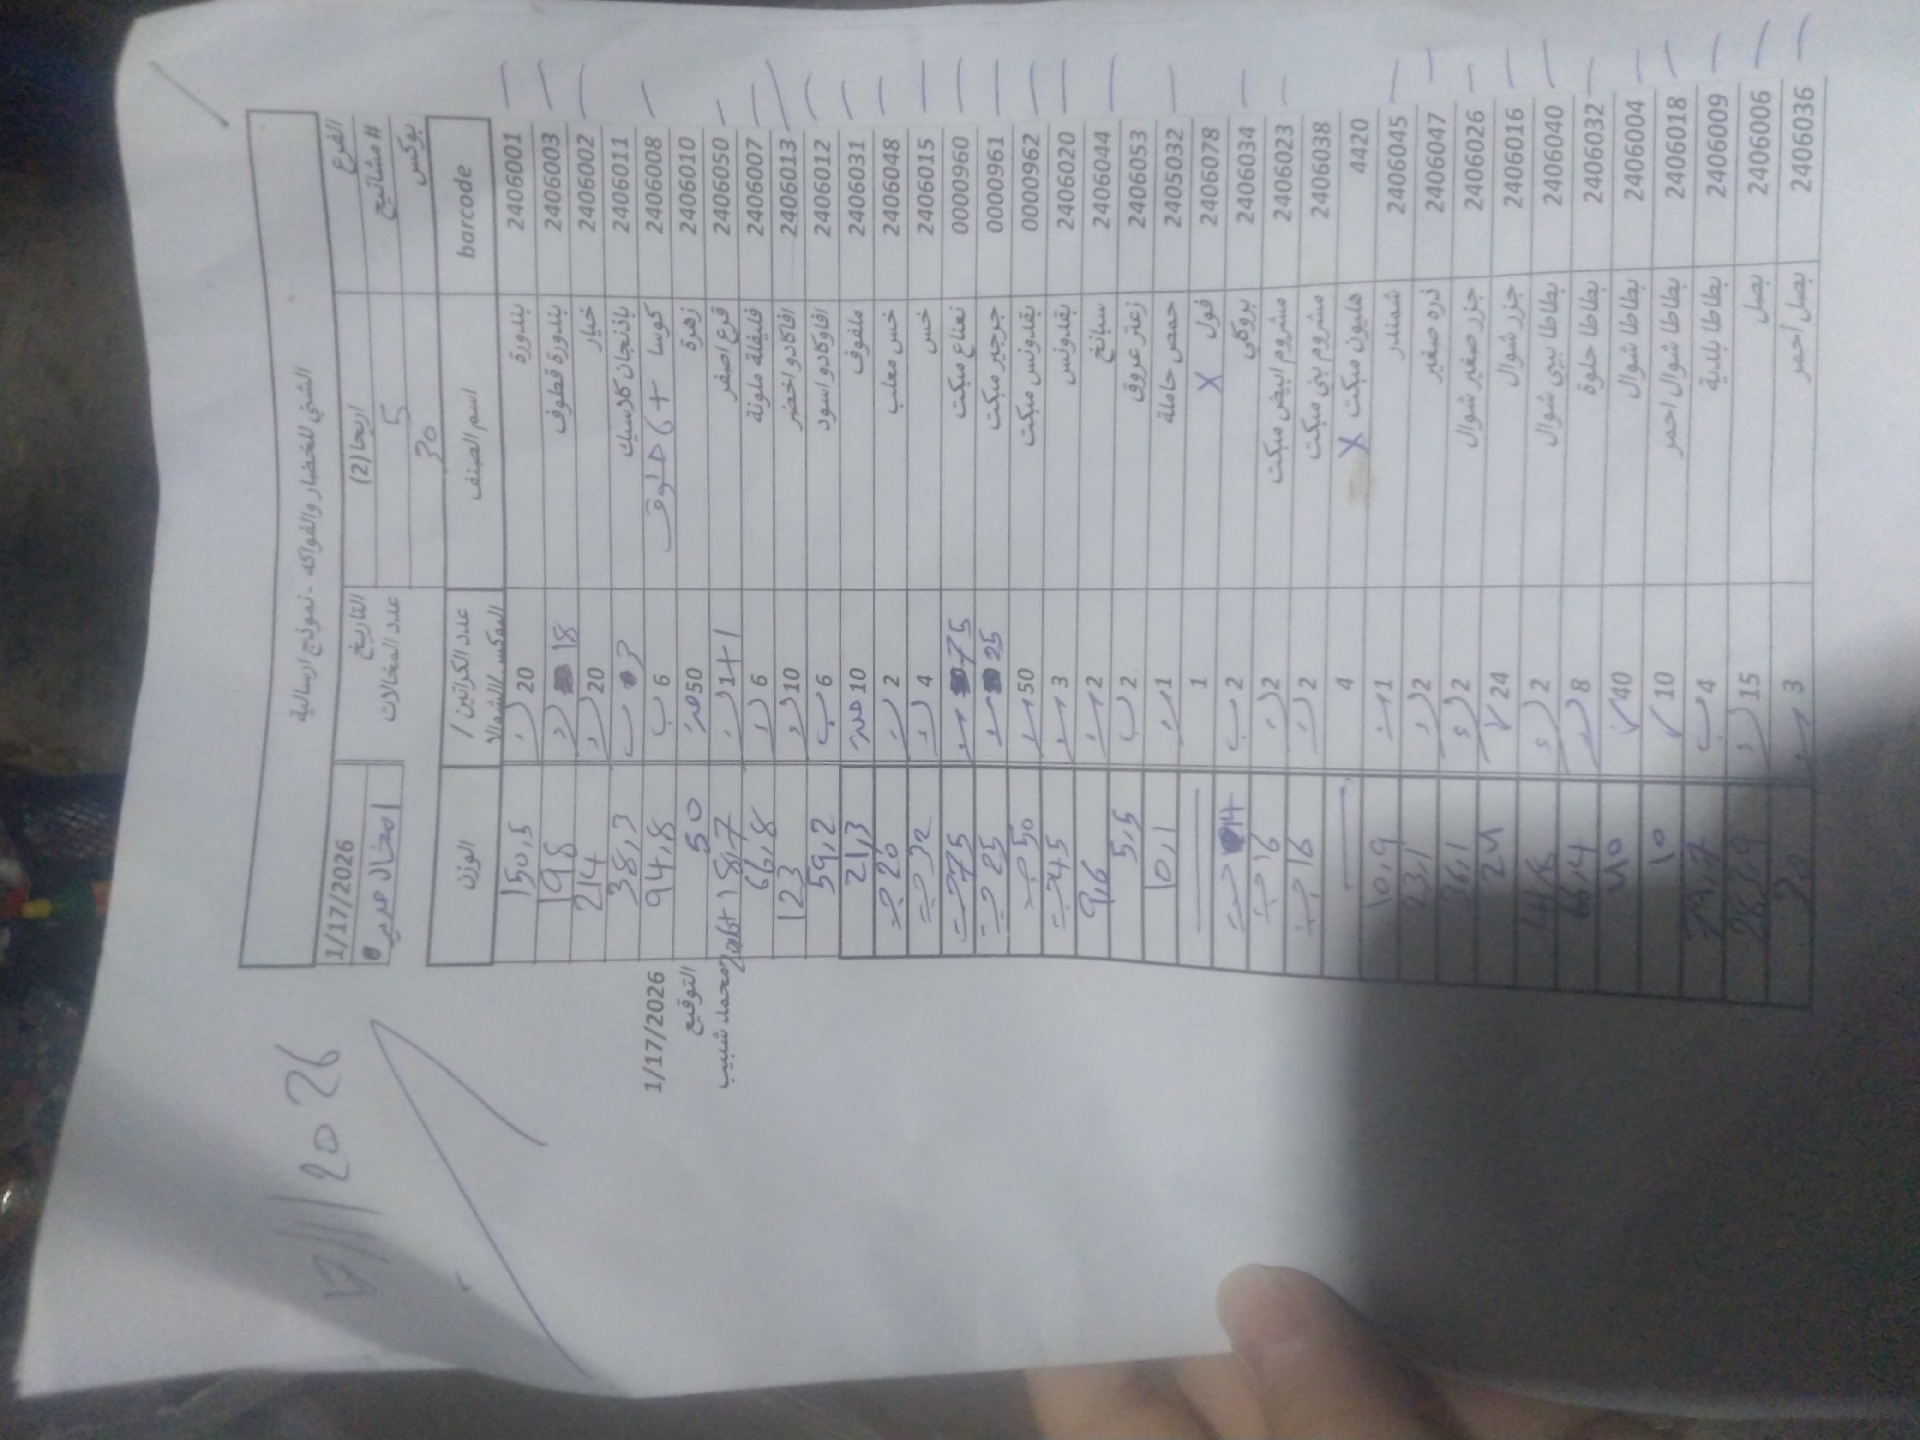 الشني للخضار والفواكه - نموذج ارسالية
الفرع اريحا (2) التاريخ 1/17/2026
# مشاتيح 5 عدد المخالات
بوكس 30
barcode اسم الصنف عدد الكراتين / البوكس/الشوالات الوزن
2406001 بندورة 20 150,5
2406003 بندورة قطوف 18 198
2406002 خيار 20 214
2406011 باذنجان كلاسيك 3 38,3
2406008 كوسا + 6 6 94,8
2406010 زهرة 50 50
2406050 قرع اصفر 1+1 18,7
2406007 فليفلة ملونة 6 66,8
2406013 افاكادو اخضر 10 123
2406012 افاوكادو اسود 6 59,2
2406031 ملفوف 10 21,3
2406048 خس معلب 2 20
2406015 خس 4 32
0000960 نعناع مبكت 75 75
0000961 جرجير مبكت 25 25
0000962 بقدونس مبكت 50 50
2406020 بقدونس 3 45
2406044 سبانخ 2 9,6
2406053 زعتر عروق 2 5,5
2405032 حمص حاملة 1 10,1
2406078 فول X 1
2406034 بروكلي 2 14
2406023 مشروم ابيض مبكت 2 16
2406038 مشروم بني مبكت 2 16
4420 هليون مبكت X 4
2406045 شمندر 1 10,9
2406047 ذره صغير 2 23,1
2406026 جزر صغير شوال 2 36,1
2406016 جزر شوال 24 24
2406040 بطاطا بيبي شوال 2
2406032 بطاطا حلوة 8
2406004 بطاطا شوال 40 40
2406018 بطاطا شوال احمر 10 10
2406009 بطاطا بلدية 4
2406006 بصل 15
2406036 بصل احمر 3
1/17/2026
التوقيع
محمد شبيب
17/1/2026